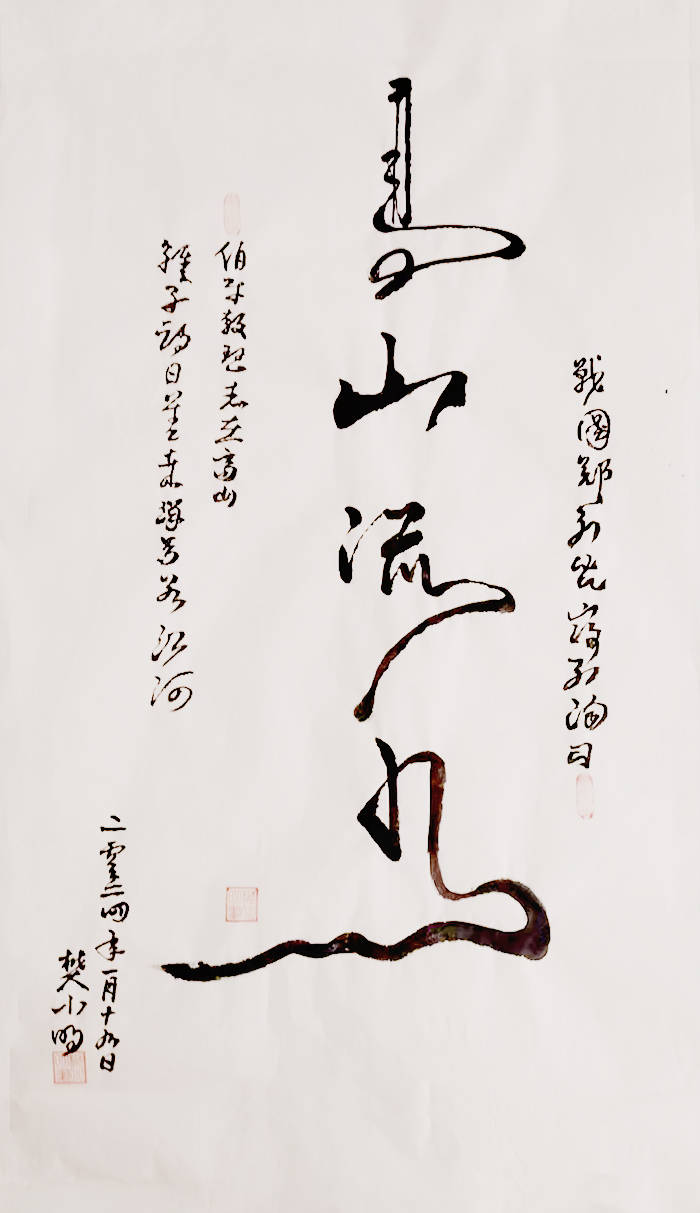 戰國鄭列禦寇列子湯問
高山流水
伯牙鼓琴志在高山
鍾子期曰善哉兮若江河
二零二四年一月十九日
樊小明